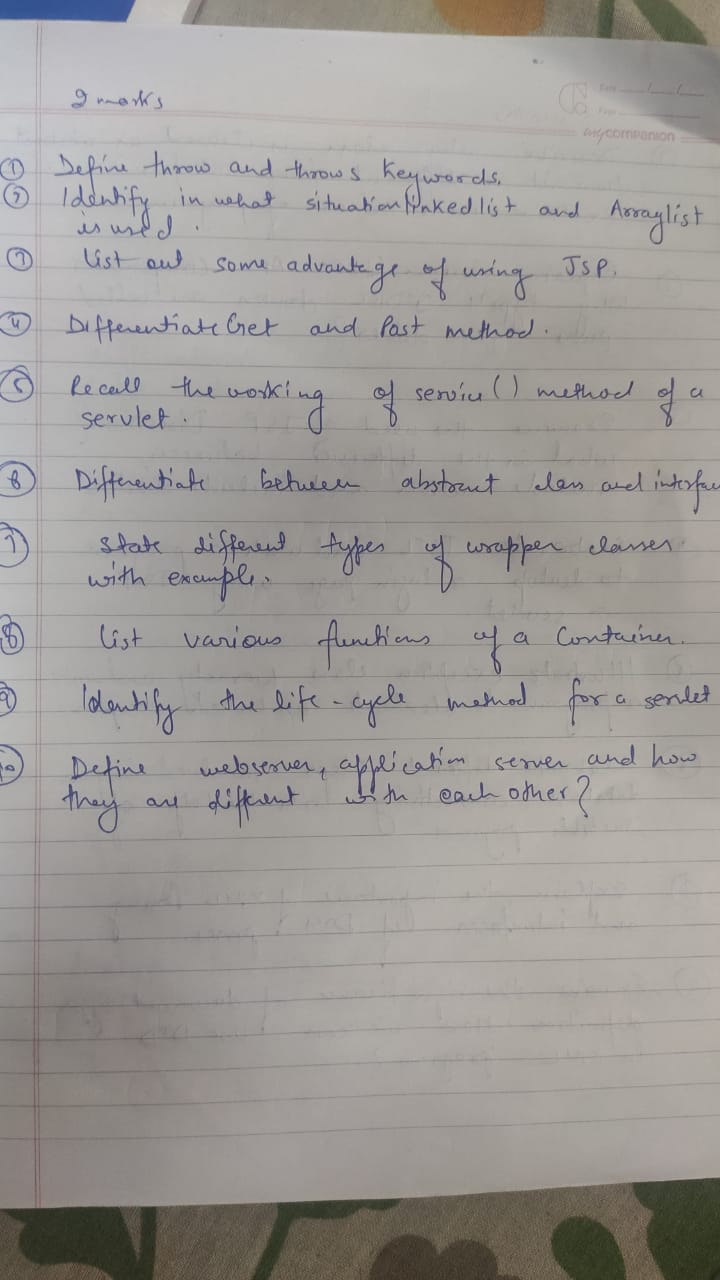 2 marks
mycompanion
① Define throw and throws Keywords.
② Identify in what situation linked list and Arraylist
is used.
③ list out some advantage of using JSP.
④ Differentiate Get and Post method.
⑤ Recall the working of service() method of a
servlet.
⑥ Differentiate between abstract class and interfac
⑦ State different types of wrapper classes
with example.
⑧ List various functions of a Container.
⑨ Identify the life-cycle method for a servlet
⑩ Define webserver, application server and how
they are different with each other?